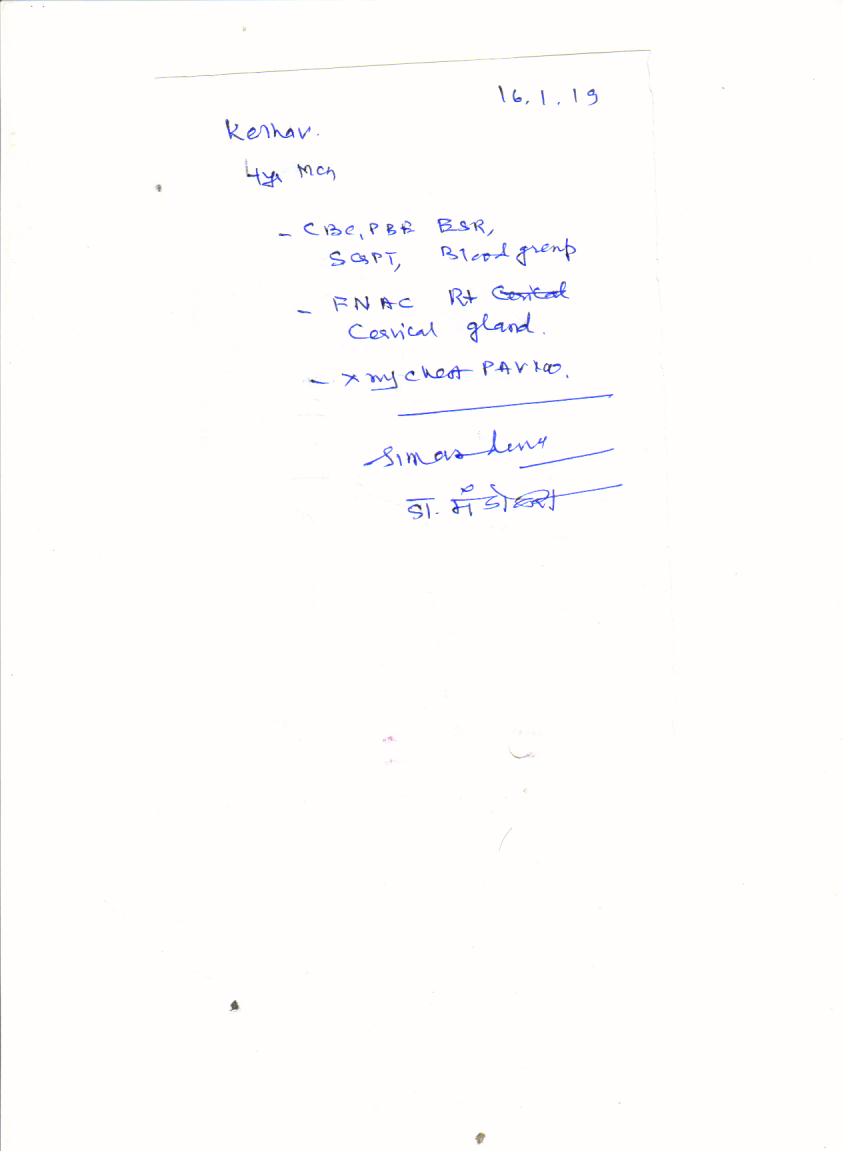 16.1.19
Keshav.
4yr Mch
- CBC, PBF ESR,
SGPT, Blood group
- FNAC Rt Cervical
Cervical gland.
- X ray chest PA View.
डा.